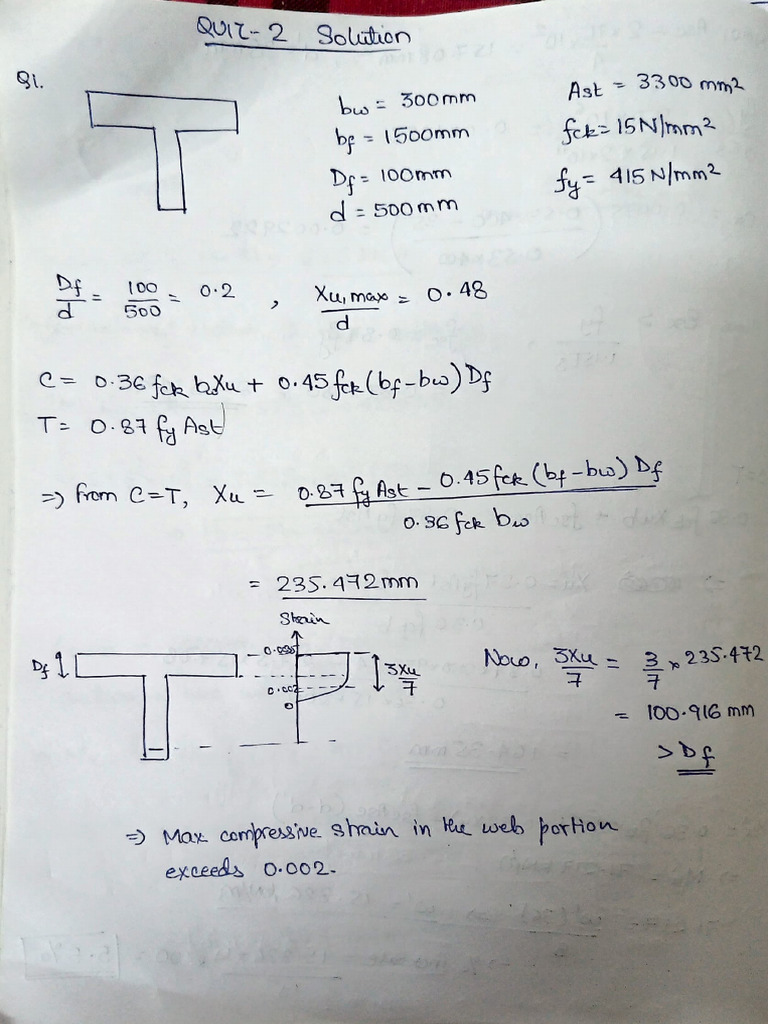 QUIZ-2 Solution
Q1.
bw = 300mm
bf = 1500mm
Df = 100mm
d = 500mm
Ast = 3300 mm²
fck = 15N/mm²
fy = 415N/mm²
Df/d = 100/500 = 0.2 , Xu,max/d = 0.48
C = 0.36 fck bwXu + 0.45 fck (bf-bw) Df
T = 0.87 fy Ast
⇒ From C=T, Xu = (0.87 fy Ast - 0.45 fck (bf-bw) Df)/(0.36 fck bw)
= 235.472mm
Strain
Df
0.0035
0.002
0
3Xu/7
Now, 3Xu/7 = 3/7 × 235.472
= 100.916 mm
> Df
⇒ Max compressive strain in the web portion
exceeds 0.002.